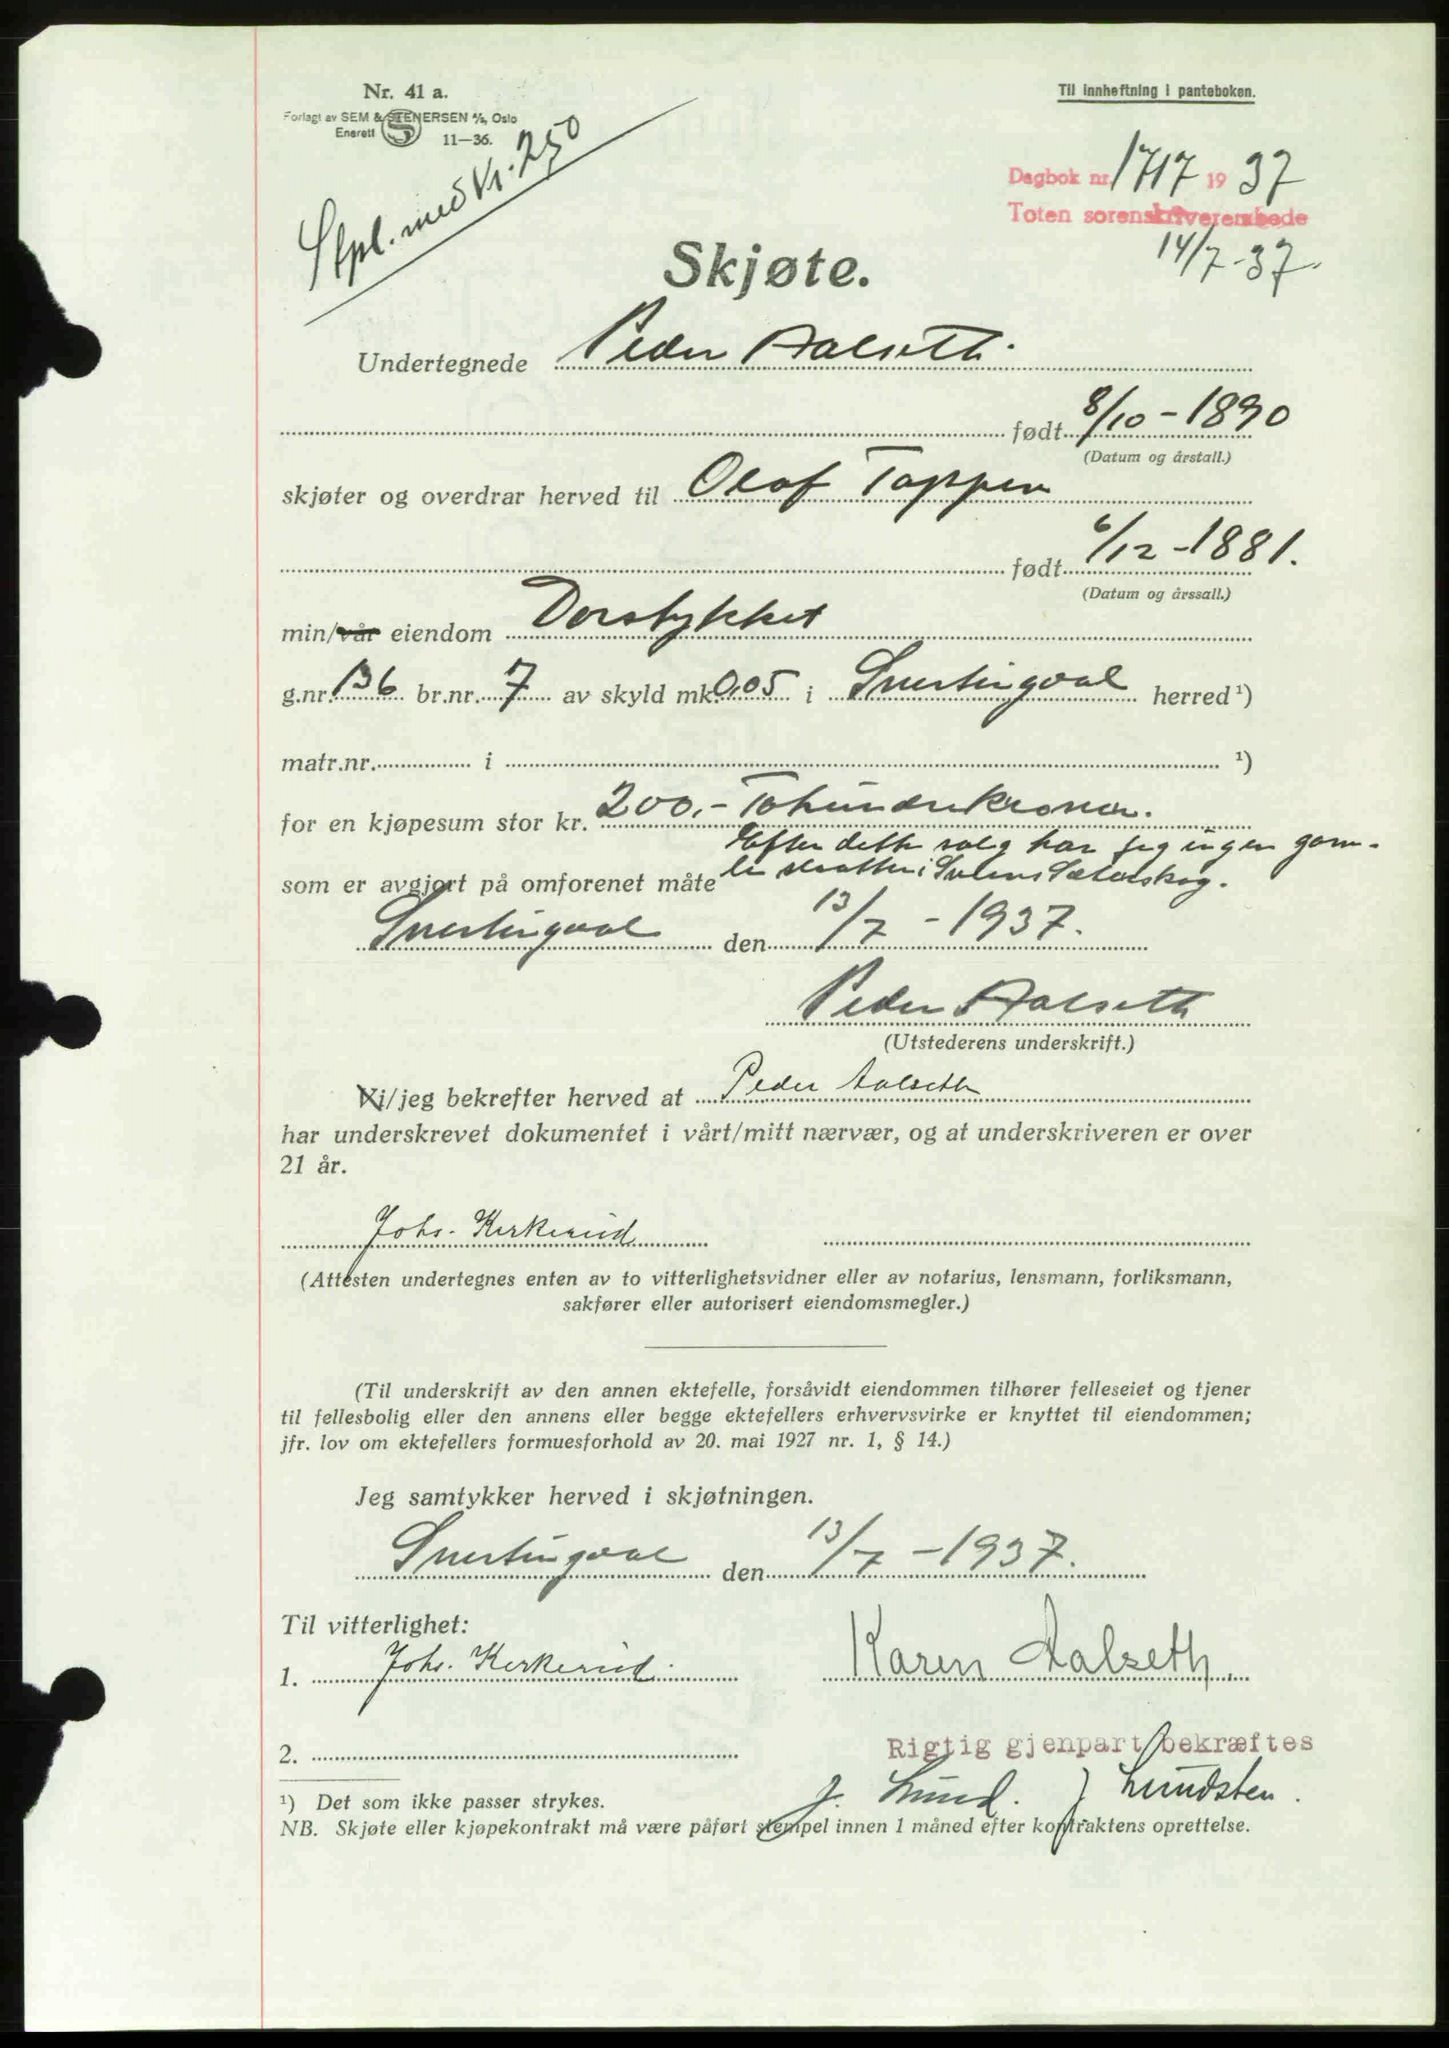 Nr. 41 a.
Forlagt av SEM & STENERSEN A/S, Oslo
Enerett S 11—36.
Til innheftning i panteboken.
Stpl. med Kr. 2,50
Dagbok nr. 1717 1937
Toten sorenskriverembede
14/7-37.
Skjøte.
Undertegnede Peder Aalseth.
født 8/10-1890
(Datum og årstall.)
skjøter og overdrar herved til Olaf Tappen
født 6/12-1881.
(Datum og årssall.)
min/vår eiendom Dorstykket
g.nr. 136 br.nr. 7 av skyld mk. 0,05 i Snertingdal herred ¹)
matr.nr. i ¹)
for en kjøpesum stor kr. 200,- Tohundrekroner.
Efter dette salg har jeg ingen gam-
som er avgjort på omforenet måte
Snertingdal den 13/7-1937.
Peder Aalseth
(Utstederens underskrift.)
Vi/jeg bekrefter herved at Peder Aalseth
har underskrevet dokumentet i vårt/mitt nærvær, og at underskriveren er over
21 år.
Johs. Kirkerud
(Attesten undertegnes enten av to vitterlighetsvidner eller av notarius, lensmann, forliksmann,
sakfører eller autorisert eiendomsmegler.)
(Til underskrift av den annen ektefelle, forsåvidt eiendommen tilhører felleseiet og tjener
til fellesbolig eller den annens eller begge ektefellers erhvervsvirke er knyttet til eiendommen;
jfr. lov om ektefellers formuesforhold av 20. mai 1927 nr. 1, § 14.)
Jeg samtykker herved i skjøtningen.
Snertingdal den 13/7-1937.
Til vitterlighet:
1. Johs. Kirkerud. Karen Aalseth.
2.
Rigtig gjenpart bekræftes
J. Lund. J Lundsten.
¹) Det som ikke passer strykes.
NB. Skjøte eller kjøpekontrakt må være påført stempel innen 1 måned efter kontraktens oprettelse.